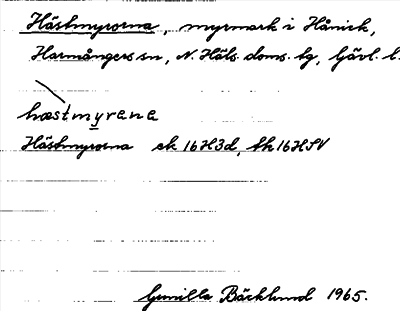 Hästmyrorna, myrmark i Hånick,
Harmångers sn, N. Häls. doms. tg, Gävl. l.
hæstmyrana
Hästmyrorna ek 16H3d, tk 16HSV
Gunilla Bäcklund 1965.